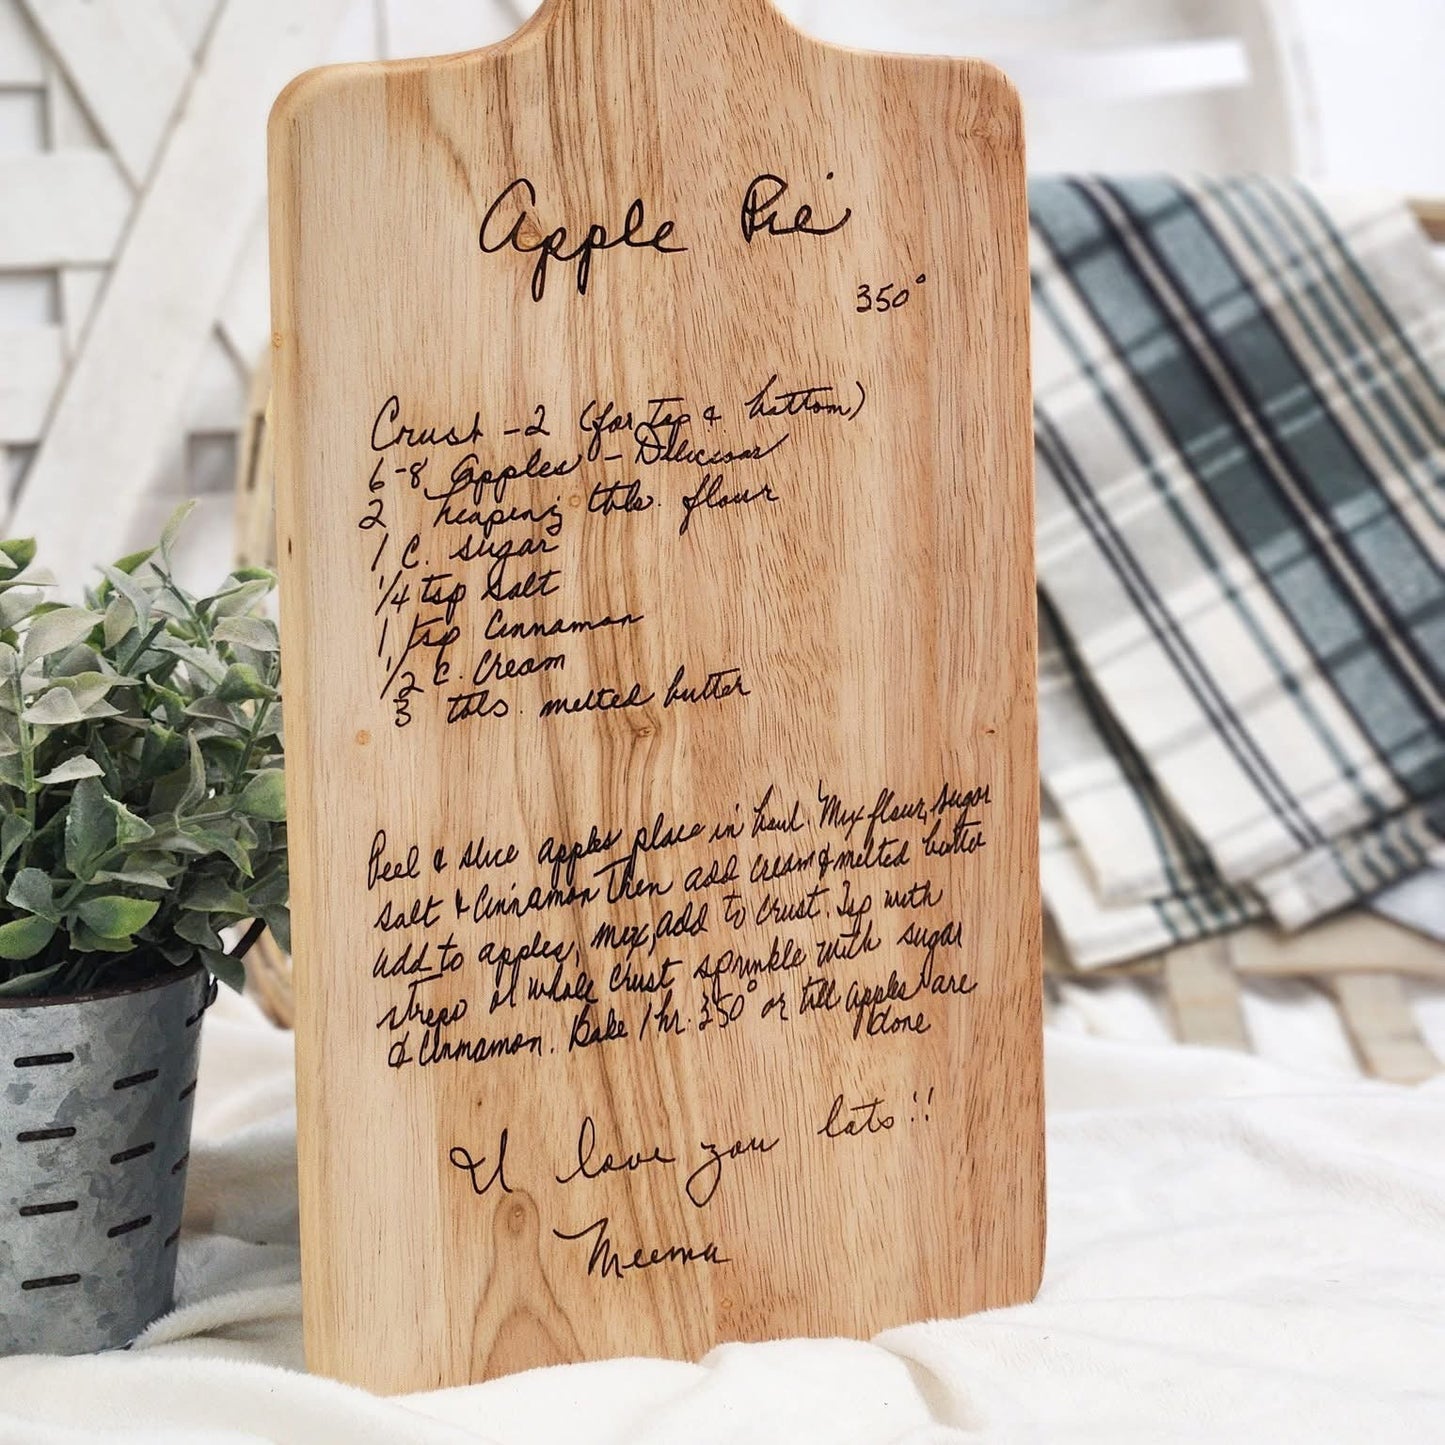 Apple Pie
350°
Crust - 2 (for Top & bottom)
6-8 Apples - Delicious
2 heaping tbls. flour
1 C. sugar
1/4 tsp Salt
1 tsp Cinnamon
1/2 C. Cream
3 tbls. melted butter
Peel & slice apples place in bowl. Mix flour, sugar
salt & Cinnamon Then add cream & melted butter
add to apples, mix, add to crust. Top with
strips or whole crust sprinkle with sugar
& Cinnamon. Bake 1 hr. 350° or till apples are
done
I love you lots!!
Meema